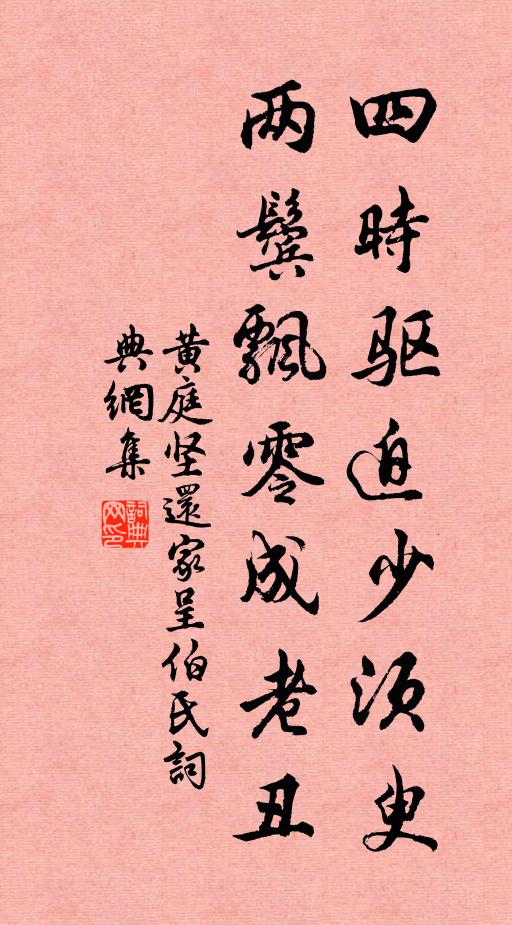 四時驱迫少须臾
两鬓飄零成老丑
黄庭坚還家呈伯氏詞
典網集
詞典网印